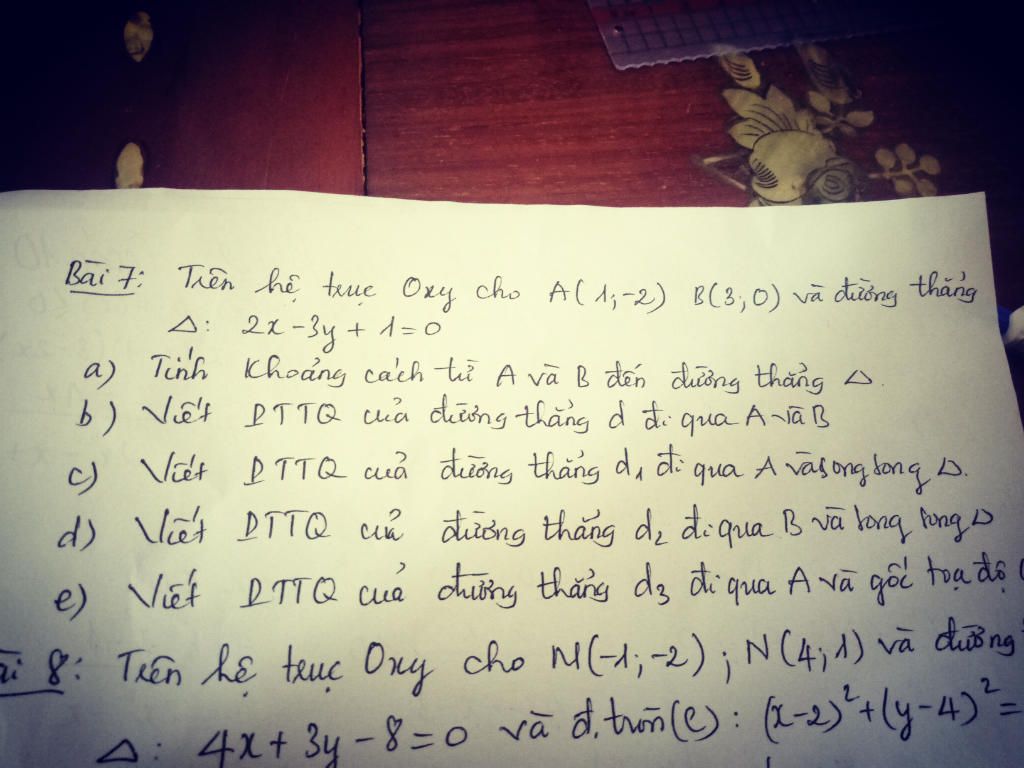 Bài 7: Trên hệ trục Oxy cho A(1;-2) B(3;0) và đường thẳng
Δ: 2x-3y+1=0
a) Tính khoảng cách từ A và B đến đường thẳng Δ.
b) Viết PTTQ của đường thẳng d đi qua A và B
c) Viết PTTQ của đường thẳng d₁ đi qua A và song song Δ.
d) Viết PTTQ của đường thẳng d₂ đi qua B và song song Δ
e) Viết PTTQ của đường thẳng d₃ đi qua A và gốc tọa độ
ài 8: Trên hệ trục Oxy cho M(-1;-2); N(4;1) và đường
Δ: 4x+3y-8=0 và đ.tròn(C): (x-2)²+(y-4)²=